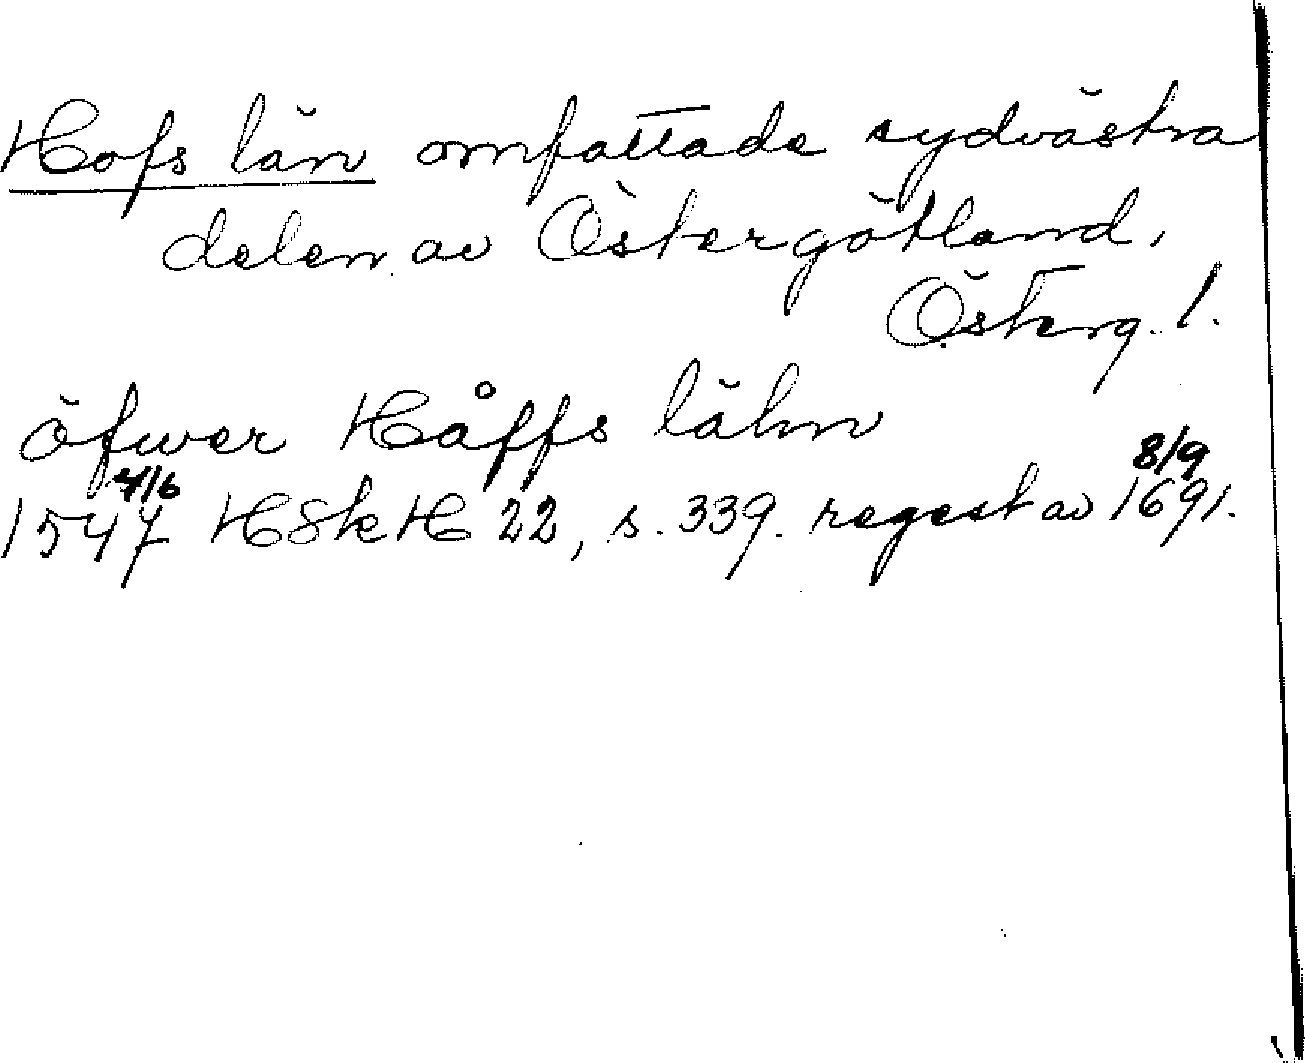 Hofs län omfattade sydvästra
delen av Östergötland,
Österg. l.
öfwer Håffs lähn
1547 4/6 HSkH 22, s. 339. regest av 1691 8/9.